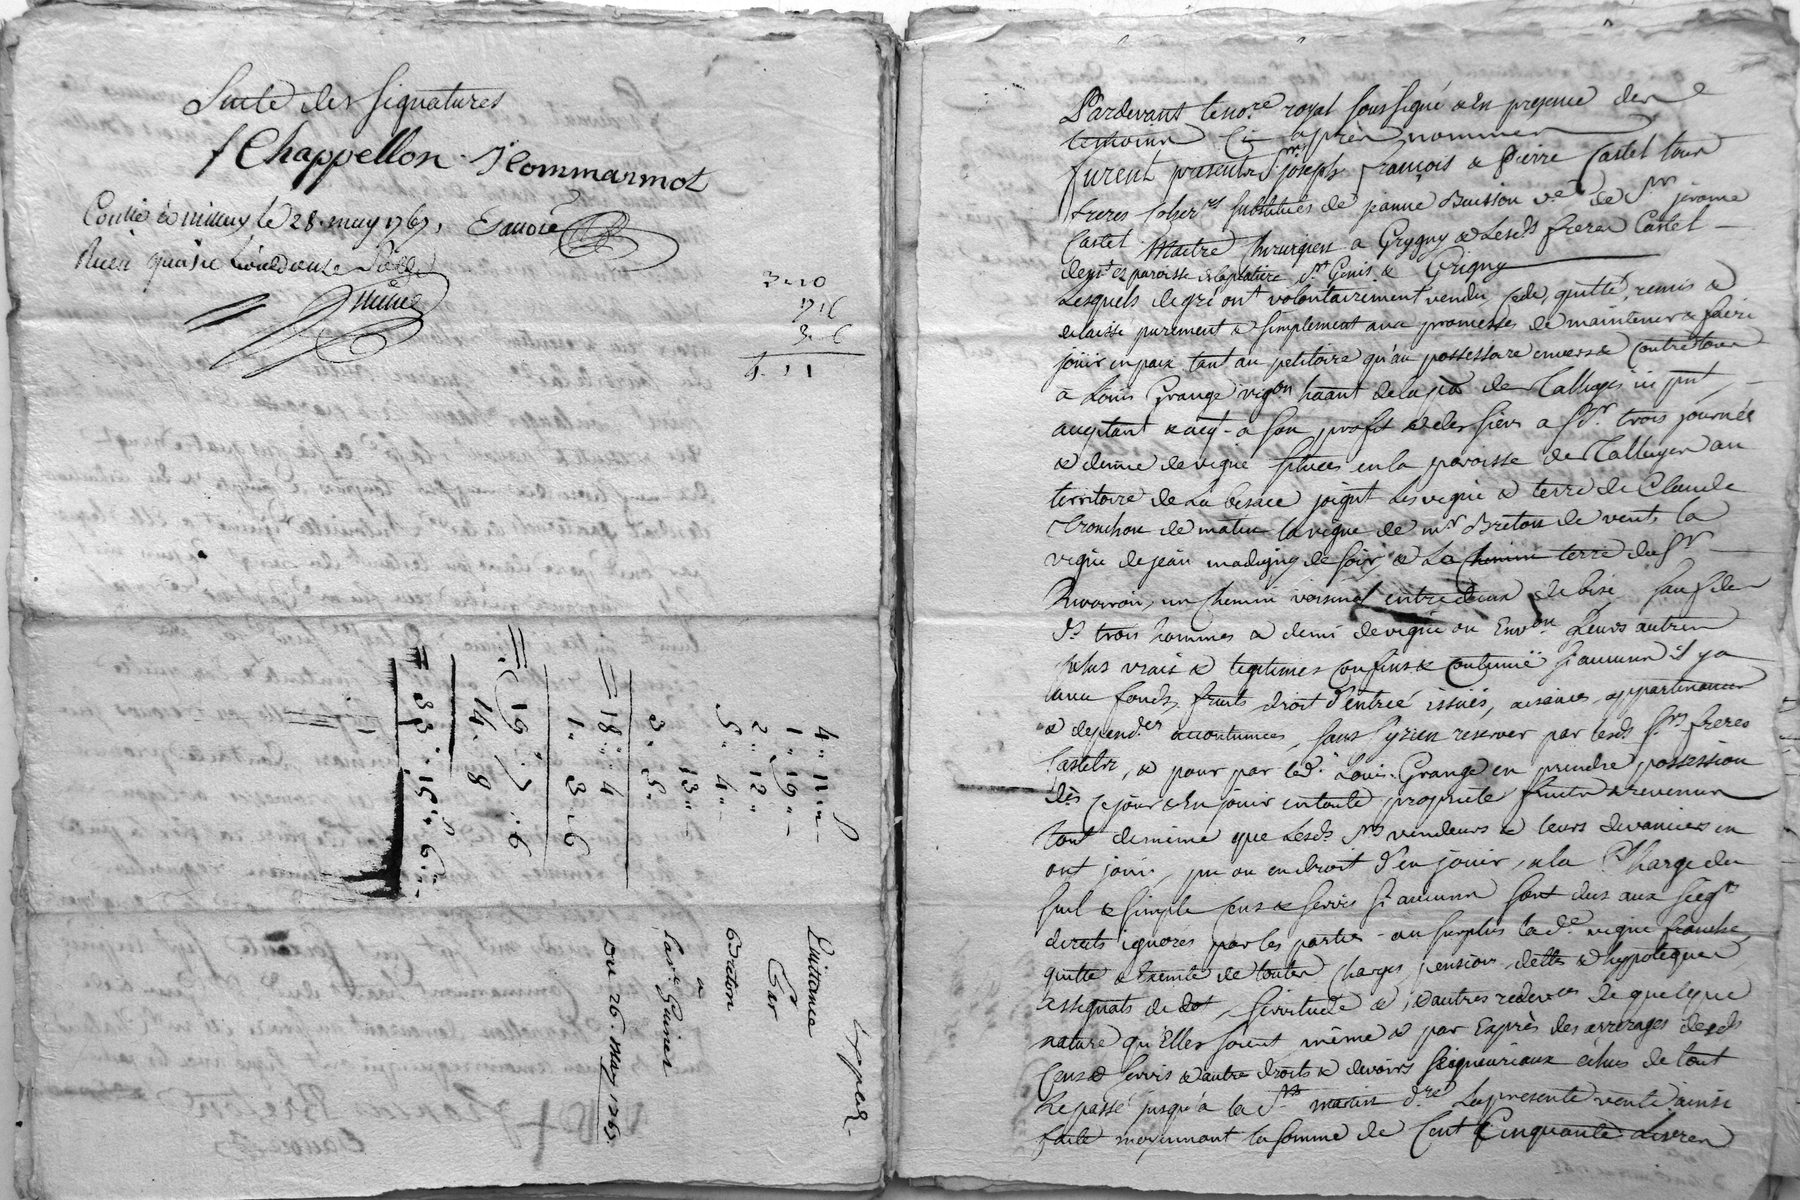 Suite des signatures
f Chappellon. J Commarmot
Conllé à millery le 28. may 1767,
Reçu quatre livres douze sols
3 .. 10
19 .. 6
3 .. 6
4 .. 11
4 .. 11 .. -
1 .. 19 .. -
2 .. 12 .. -
5 .. 4 .. -
13 .. -
3 .. 5 ..
= 18 .. 4
1 .. 3 .. 6
= 19 .. 7 .. 6
14 .. 8
= 33 .. 15 .. 6 ..
Quittance
Par
Braton
a
la ve Guinet
Du 26. may 1767.
Pardevant le nore. royal soussigné & en presence des
temoins Ci après nommes
furent presents Srs. joseph, françois & Pierre Castel tous
freres substitués de jeanne Buisson ve. de Sr. jerome
Castel Maitre Chirurgien a Grygny & Lesds freres Castel
paroisse St. Genis & Grigny
Lesquels de gré ont volontairement vendu, cedé, quitté, remis &
delaissé purement & simplement avec promesses de maintenir & faire
jouir en paix tant au petitoire qu'au possessoire envers & Contre tous
à Louis Grange vigon habant de la psse de Talluyes ici pnt,
aceptant & acqt a son profit & des siens a Sr. trois journée
& demie de vigne situées en la paroisse de Talluyer au
territoire de La besace joignt les vigne & terre de Claude
de matin la vigne de mr. Breton de vent, la
vigne de jean madigny de soir & La Chemin terre du Sr.
un Chemin voisinal entre deux de bise sauf des
ds. trois hommes & demi de vigne ou Envon. Leurs autres
plus vrais & legitimes Confins & Contenue si aucuns il y a
avec fonds, fruits droit d'entrée issuës, aisances, appartenances
& dependes. accoutumées, sans y rien reserver par lesds Srs freres
Castels, & pour par led. Louis Grange en prendre possession
dès Ce jour & En jouir en toute proprieté fruits & revenus
tout de même que Lesds Srs vendeurs & leurs devanciers en
ont joui, pu ou en droit d'en jouir, a la Charge du
seul & simple Cens & servis si aucuns sont dus aux Seigrs
directs ignorés par les parties - au surplus lade. vigne franche,
quitte & exempte de toutes Charges, pensions dettes & hypoteques
assignats de dot, servitude & d'autres redeves de quelque
nature qu'Elles soient même & par Exprès des arrerages desds
Cens & servis & autre droits & devoirs seigneuriaux échus de tout
le passé jusqu'à la St. martin dre. La presente vente ainsi
faite moyennant la somme de Cent Cinquante Livres